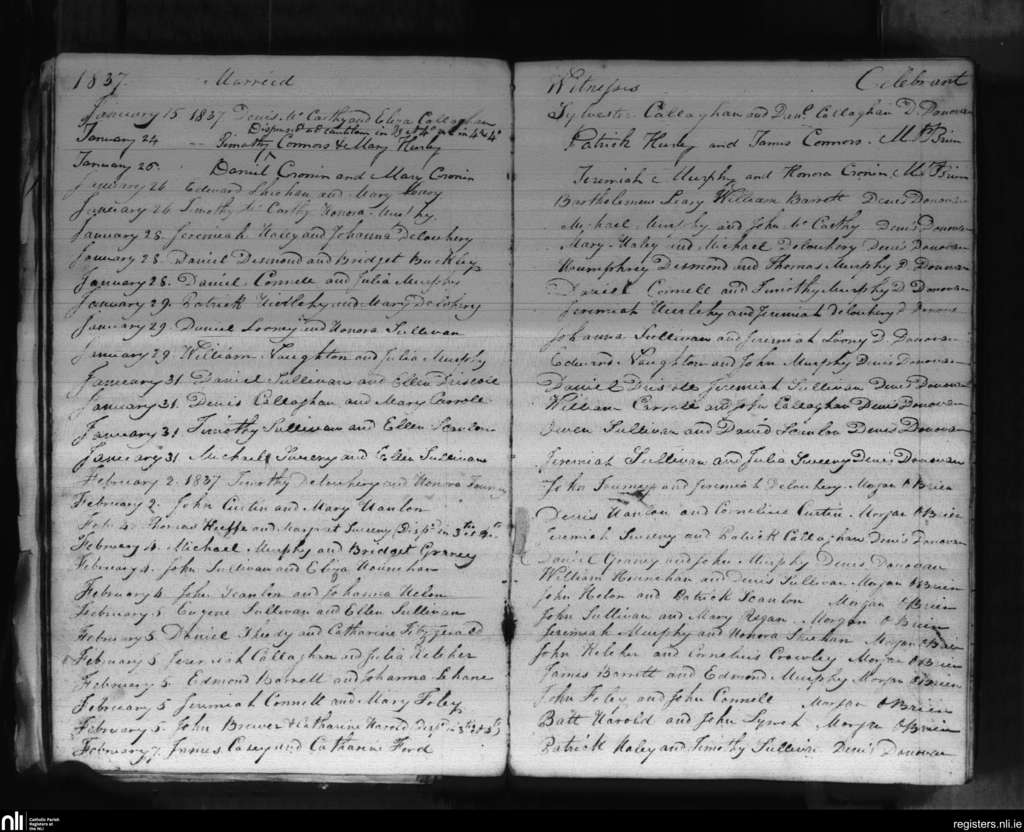 1837. Married
January 15 1837 Denis Mc Carthy and Eliza Callaghan
Dispensed at caution in 3 & 4th and in 4 & 4th
January 24 -- Timothy Connors & Mary Hurley
January 25. Daniel Cronin and Mary Cronin
January 26 Edward Sheehan and Mary
January 26 Timothy Mc Carthy Honora Murphy
January 28. Jeremiah Haley and Johanna Delouhery
January 28. Daniel Desmond and Bridget Buckley
January 28. Daniel Connell and Julia Murphy
January 29. Patrick and Mary Delohery
January 29. Daniel Looney and Honora Sullivan
January 29. William Naughton and Julia Murphy
January 31 Daniel Sullivan and Ellen Driscoll
January 31. Denis Callaghan and Mary Carroll
January 31 Timothy Sullivan and Ellen Scanlon
January 31 Michael Sweeny and Ellen Sullivan
February 2. 1837 Timothy Delouhery and Honora
February 2. John Curtin and Mary Hanlon
Feb. 4. Thomas Keeffe and Margret Sweeny Disp. in 3tio
February 4. Michael Murphy and Bridget Graney
February 4. John Sullivan and Eliza Hounehan
February 4 John Scanlon and Johanna Helon
February 5 Eugene Sullivan and Ellen Sullivan
February 5 Daniel and Catharine Fitzgerald
February 5 Jeremiah Callaghan and Julia Kelcher
February 5. Edmond Barrett and Johanna Lehane
February 5 Jeremiah Connell and Mary Foley
February 5. John Brewer & Catharine Harold Disp. in 3tio
February 7. James Casey and Catharine Ford
Witnesses Celebrant
Sylvester Callaghan and Denl. Callaghan D. Donovan
Patrick Hurley and James Connors. M. O'Brien
Jeremiah Murphy and Honora Cronin M. O'Brien
Bartholomew Leary William Barrett Denis Donovan
Michael Murphy and John Mc Carthy Denis Donovan
Mary Haley and Michael Delouhery Denis Donovan
Houmphrey Desmond and Thomas Murphy D. Donovan
Daniel Connell and Timothy Murphy D Donovan
Jeremiah and Jeremiah Delouhery D Donovan
Johanna Sullivan and Jeremiah Loony D. Donovan
Edward Naughton and John Murphy Denis Donovan
Daniel Driscole Jeremiah Sullivan Denis Donovan
William Carroll and John Callaghan Denis Donovan
Owen Sullivan and David Scanlon Denis Donovan
Jeremiah Sullivan and Julia Sweeny Denis Donovan
John and Jeremiah Delouhery Morgan O'Brien
Denis Hanlon and Cornelius Curtin Morgan O'Brien
Jeremiah Sweeny and Patrick Callaghan Denis Donovan
Daniel Graney and John Murphy Denis Donovan
William Hounehan and Denis Sullivan Morgan O'Brien
John Helon and Patrick Scanlon Morgan O'Brien
John Sullivan and Mary Regan Morgan O'Brien
Jeremiah Murphy and Honora Sheehan Morgan O'Brien
John Kelcher and Cornelius Crowley Morgan O'Brien
James Barrett and Edmond Murphy Morgan O'Brien
John Foley and John Connell Morgan O'Brien
Batt Harold and John Lynch Morgan O'Brien
Patrick Haley and Timothy Sullivan Denis Donovan
nli Catholic Parish Registers at the NLI
registers.nli.ie